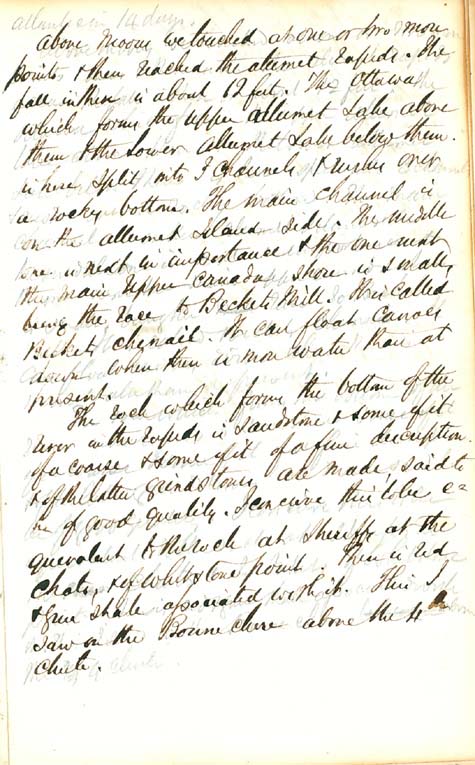 above Moore we touched at one or two more
points & then reached the allumet Rapids. The
fall in these is about 12 feet. The Ottawa
which forms the upper allumet Lake above
them & the Lower Allumet Lake below them.
is here split into 3 channels & runs over
a rocky bottom. The main channel is
on the allumet Island side. The middle
one is next in importance & the one next
the main Upper Canada shore is small
being the race to Beckets Mill. It is called
Beckets chenail. It can float canoes
down when there is more water than at
present.
The rock which forms the bottom of the
river in the rapids is sandstone & some of it
of a coarse & some of it of a fine description
& of the latter grindstones are made, said to
be of good quality. I conceive this to be e-
quevalent to the rock at Sheriffs, at the
Chats, & of Whitstone point. There is red
& green shale associated with it. This I
saw on the Bonnechere above the 4th
chute.